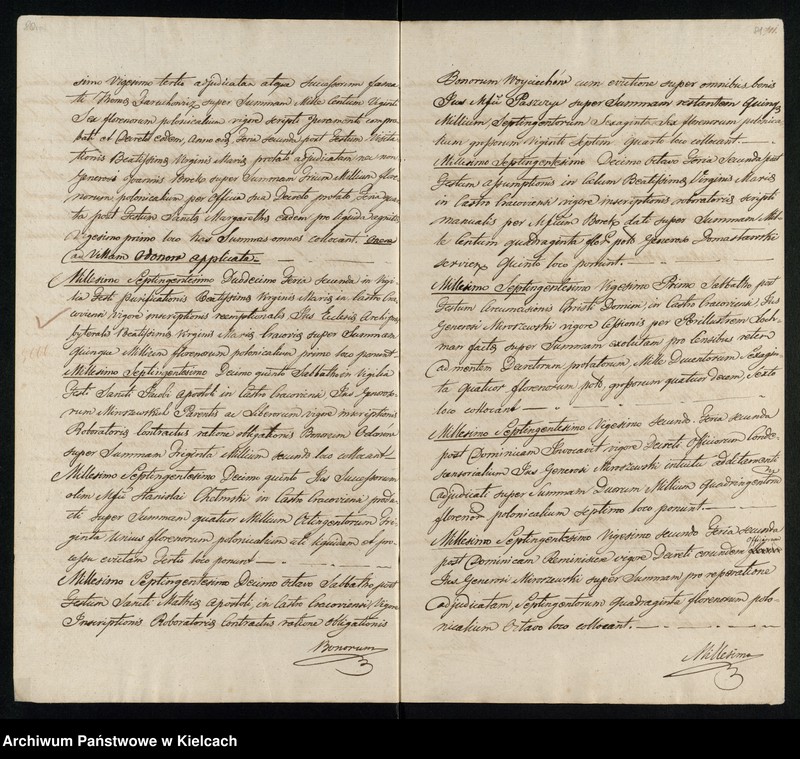 simo Vigesimo tertio adjudicatam atque Successorum
ti Thomæ Jaruchowicz super Summam Mille Centum Viginti
Sex florenorum polonicalium vigore Scripti Juramenti compro
bati et Decreto eodem, Anno eodem Feria Secunda post Festum Visita
tionis Beatissimæ Virginis Mariæ prolato adjudicatam nec non
Generosi Joannis Borek super Summam Trium Millium flore
norum polonicalium per Decreto prolato, Feria quar
ta post Festum Sanctæ Margarethæ eadem pro liquida
Vigesimo primo loco has Summas omnes collocant.
ac Villam Odonow applicata
Millesimo Septingentesimo Duodecimo Feria Secunda in Vigi
lia Festi purificationis Beatissimæ Virginis Mariæ in Castro Cra
coviensi Vigore inscriptionis reemptionalis Jus Ecclesiæ Archipres
byteralis Beatissimæ Virginis Mariæ Cracoviæ super Summam
Quinque Millium florenorum polonicalium primo loco ponunt
Millesimo Septingentesimo Decimo quinto Sabbatho in Vigilia
Festi Sancti Jacobi Apostoli in Castro Cracoviensi Jus Generoso
rum Miroszewskich Parentis ac Liberorum vigore inscriptionis
Roboratoriæ Contractus ratione obligationis Bonorum Odonow
super Summam Triginta Millium Secundo loco collocant
Millesimo Septingentesimo Decimo quinto Jus Successorum
olim Mfci Stanislai Chelmski in Castro Cracoviensi
super Summam quatuor Millium Octingentorum Tri
ginta Unius florenorum polonicalium uti liquidam et
evictam Tertio loco ponunt
Millesimo Septingentesimo Decimo octavo Sabbatho post
Festum Sancti Mathiæ Apostoli, in Castro Cracoviensi Vigore
Inscriptionis Roboratoriæ Contractus ratione obligationis
Bonorum
Bonorum Woyciechow cum evictione super omnibus bonis
Jus Mfci Paszyc super Summam restantem Quinque
Millium Septingentorum Sexaginta Sex florenorum polonica
lium grossorum Viginti Septem Quarto loco collocant.
Millesimo Septingentesimo Decimo Octavo Feria Secunda post
Festum Assumptionis in Cælum Beatissimæ Virginis Mariæ
in Castro Cracoviensi vigore inscriptionis roboratoriæ Scripti
manualis per Mfcum Borek dati super Summam Mil
le Centum quadraginta Generoso Domastawski
Quinto loco ponunt.
Millesimo Septingentesimo Vigesimo Primo Sabbatho post
Festum Circumcisionis Christi Domini, in Castro Cracoviensi Jus
Generosi Miroszewski vigore Cessionis per Perillustrem
man factæ super Summam exolutam pro Censibus reten
Ad mentem Decretorum prolatorum, Mille Ducentorum Sexagin
ta Quatuor florenorum grossorum quatuordecim, Sexto
loco collocant
Millesimo Septingentesimo Vigesimo Secundo Feria Secunda
post Dominicam Invocavit vigore Decreti Officiorum Conde
scensorialium Jus Generosi Miroszewski intuitu additamenti
Adjudicati super Summam Duorum Millium Quadringentorum
florenor polonicalium Septimo loco ponunt.
Millesimo Septingentesimo Vigesimo Secundo Feria Secunda
post Dominicam Reminiscere vigore Decreti eorundem
Jus Generosi Miroszewski super Summam pro reparatione
Adjudicatam, Septingentorum Quadraginta florenorum polo
nicalium Octavo loco collocant.
Millesimo
Archiwum Państwowe w Kielcach